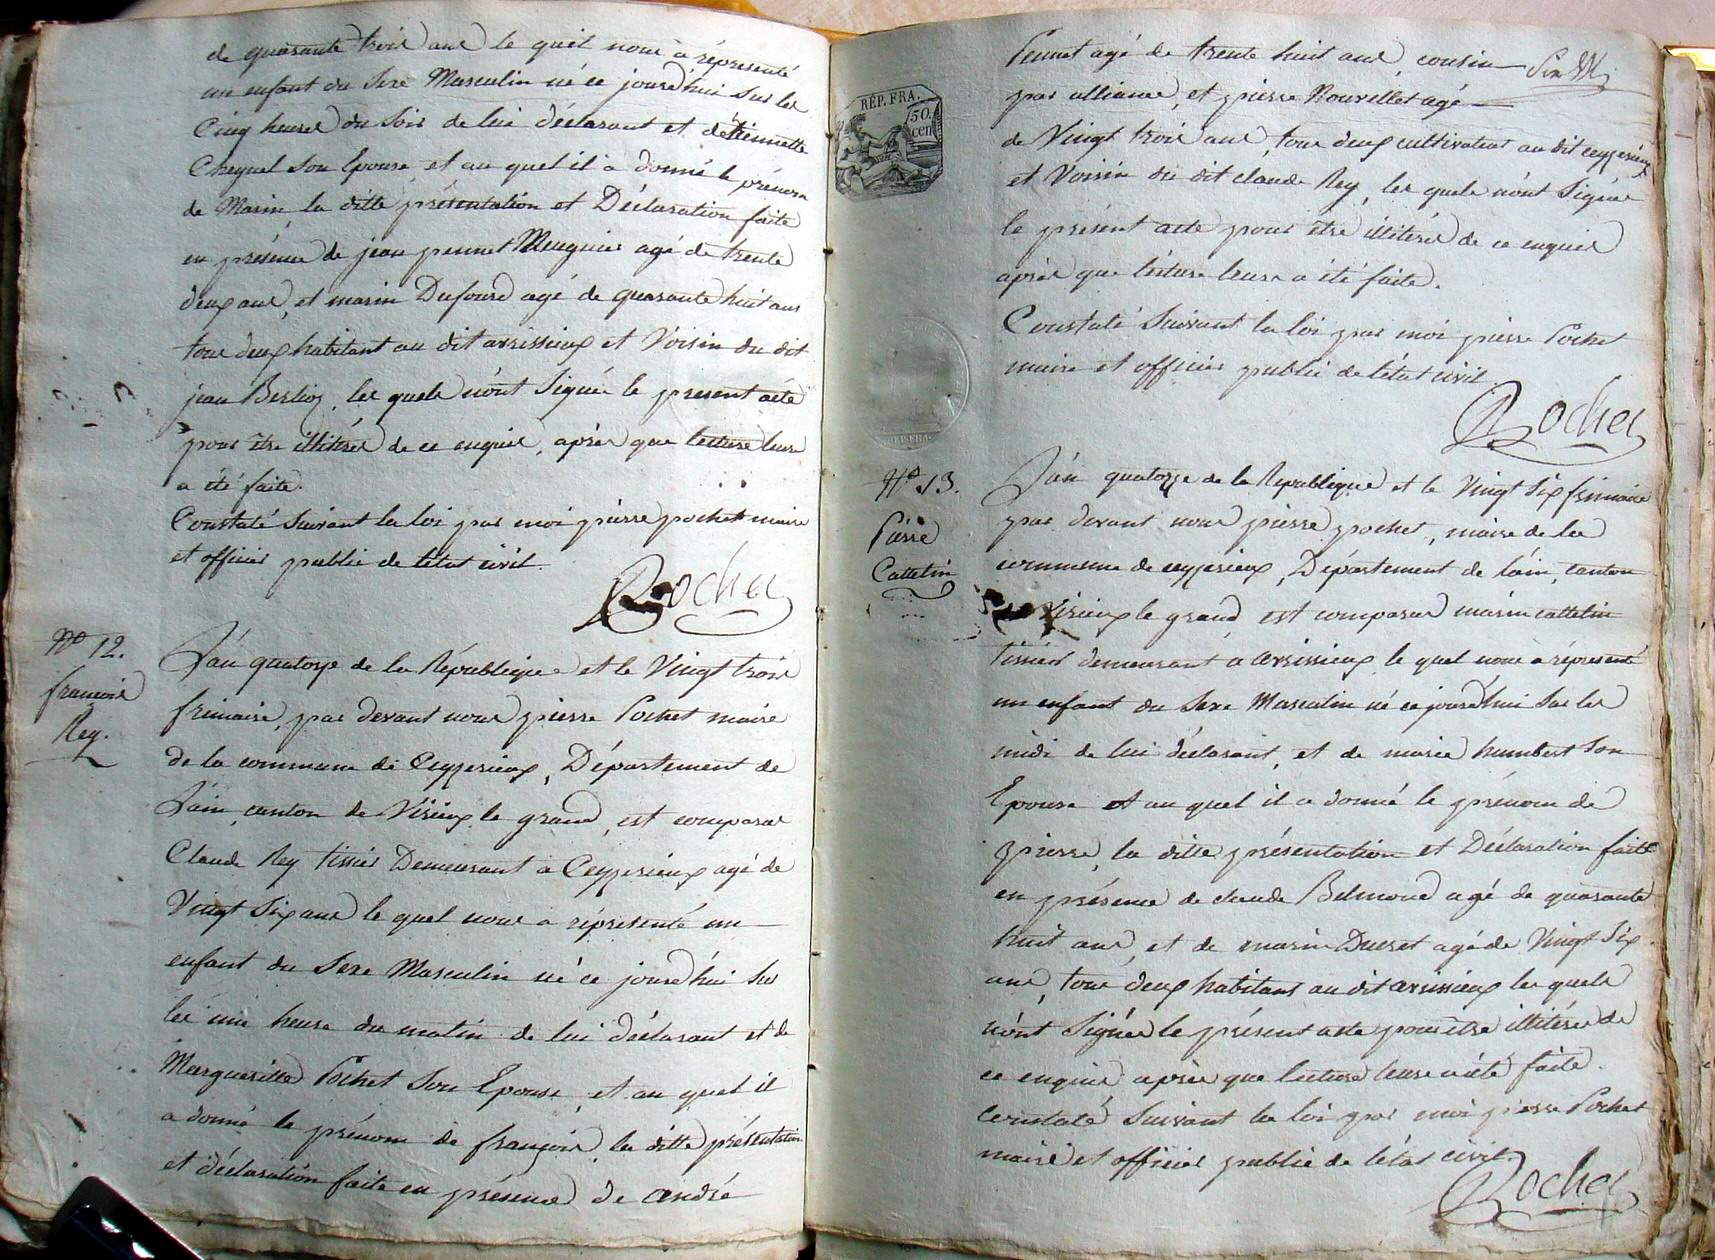 de quarante trois ans le quel nous à répresenté
un enfant du Sexe Masculin né ce jourd'hui sur les
Cinq heures du soir de lui déclarant et détiennette
Cheynel son Epouse, et au quel il à donné le prénom
de Marin, la ditte présentation et Déclaration faite
en présence de jean pennet Meugnier agé de trente
deux ans, et marin Dufourd agé de quarante huit ans
tous deux habitant au dit arsissieux et Voisin du dit
jean Berlioz, les quels n'ont Signé le present acte
pour être illitérés de ce enquis, après que lecture leurs
a été faite.
Constaté suivant la loi par moi pierre pochet maire
et officier public de l'état civil.
Pochet
N° 12.
françois
Rey.
L'an quatorze de la République et le Vingt trois
frimaire, par devant nous pierre Pochet maire
de la commune de Ceyzerieux, Département de
L'ain, canton de Virieux le grand, est comparu
Claude Rey tissier Demeurant à Ceyzerieux agé de
Vingt Six ans le quel nous a répresenté un
enfant du Sexe Masculin né ce jourd'hui sur
les une heure du matin de lui déclarant et de
Margueritte Pochet Son Epouse, et au quel il
a donné le prénom de françois, la ditte présentation
et déclaration faite en présence de andré
RÉP. FRA.
50.
cen
Pennet agé de trente huit ans, cousin
par alliance, et pierre Rouvillet agé
de Vingt trois ans, tous deux cultivateurs au dit ceyzerieux
et Voisin du dit claude Rey, les quels n'ont Signé
le présent acte pour être illitérés de ce enquis
après que lecture leurs a été faite.
Constaté Suivant la loi par moi pierre Pochet
maire et officier public de l'état civil
Pochet
N° 13.
Pierre
Cattelin
L'an quatorze de la République et le Vingt Six frimaire
par devant nous pierre pochet, maire de la
commune de ceyzerieux, Département de l'ain, canton
Virieux le grand est comparu marin cattelin
tissier demeurant à arsissieux le quel nous à répresenté
un enfant du Sexe Masculin né ce jourd'hui Sur les
midi de lui déclarant, et de marie humbert Son
Epouse et au quel il a donné le prénom de
pierre, la ditte présentation et Déclaration faite
en présence de claude Belmond agé de quarante
huit ans, et de marin Ducret agé de Vingt Six
ans, tous deux habitans au dit arsissieux les quels
n'ont Signés le présent acte pour être illitérés de
ce enquis après que lecture leurs a été faite.
constaté Suivant la loi par moi pierre Pochet
maire et officier public de l'état civil.
Pochet